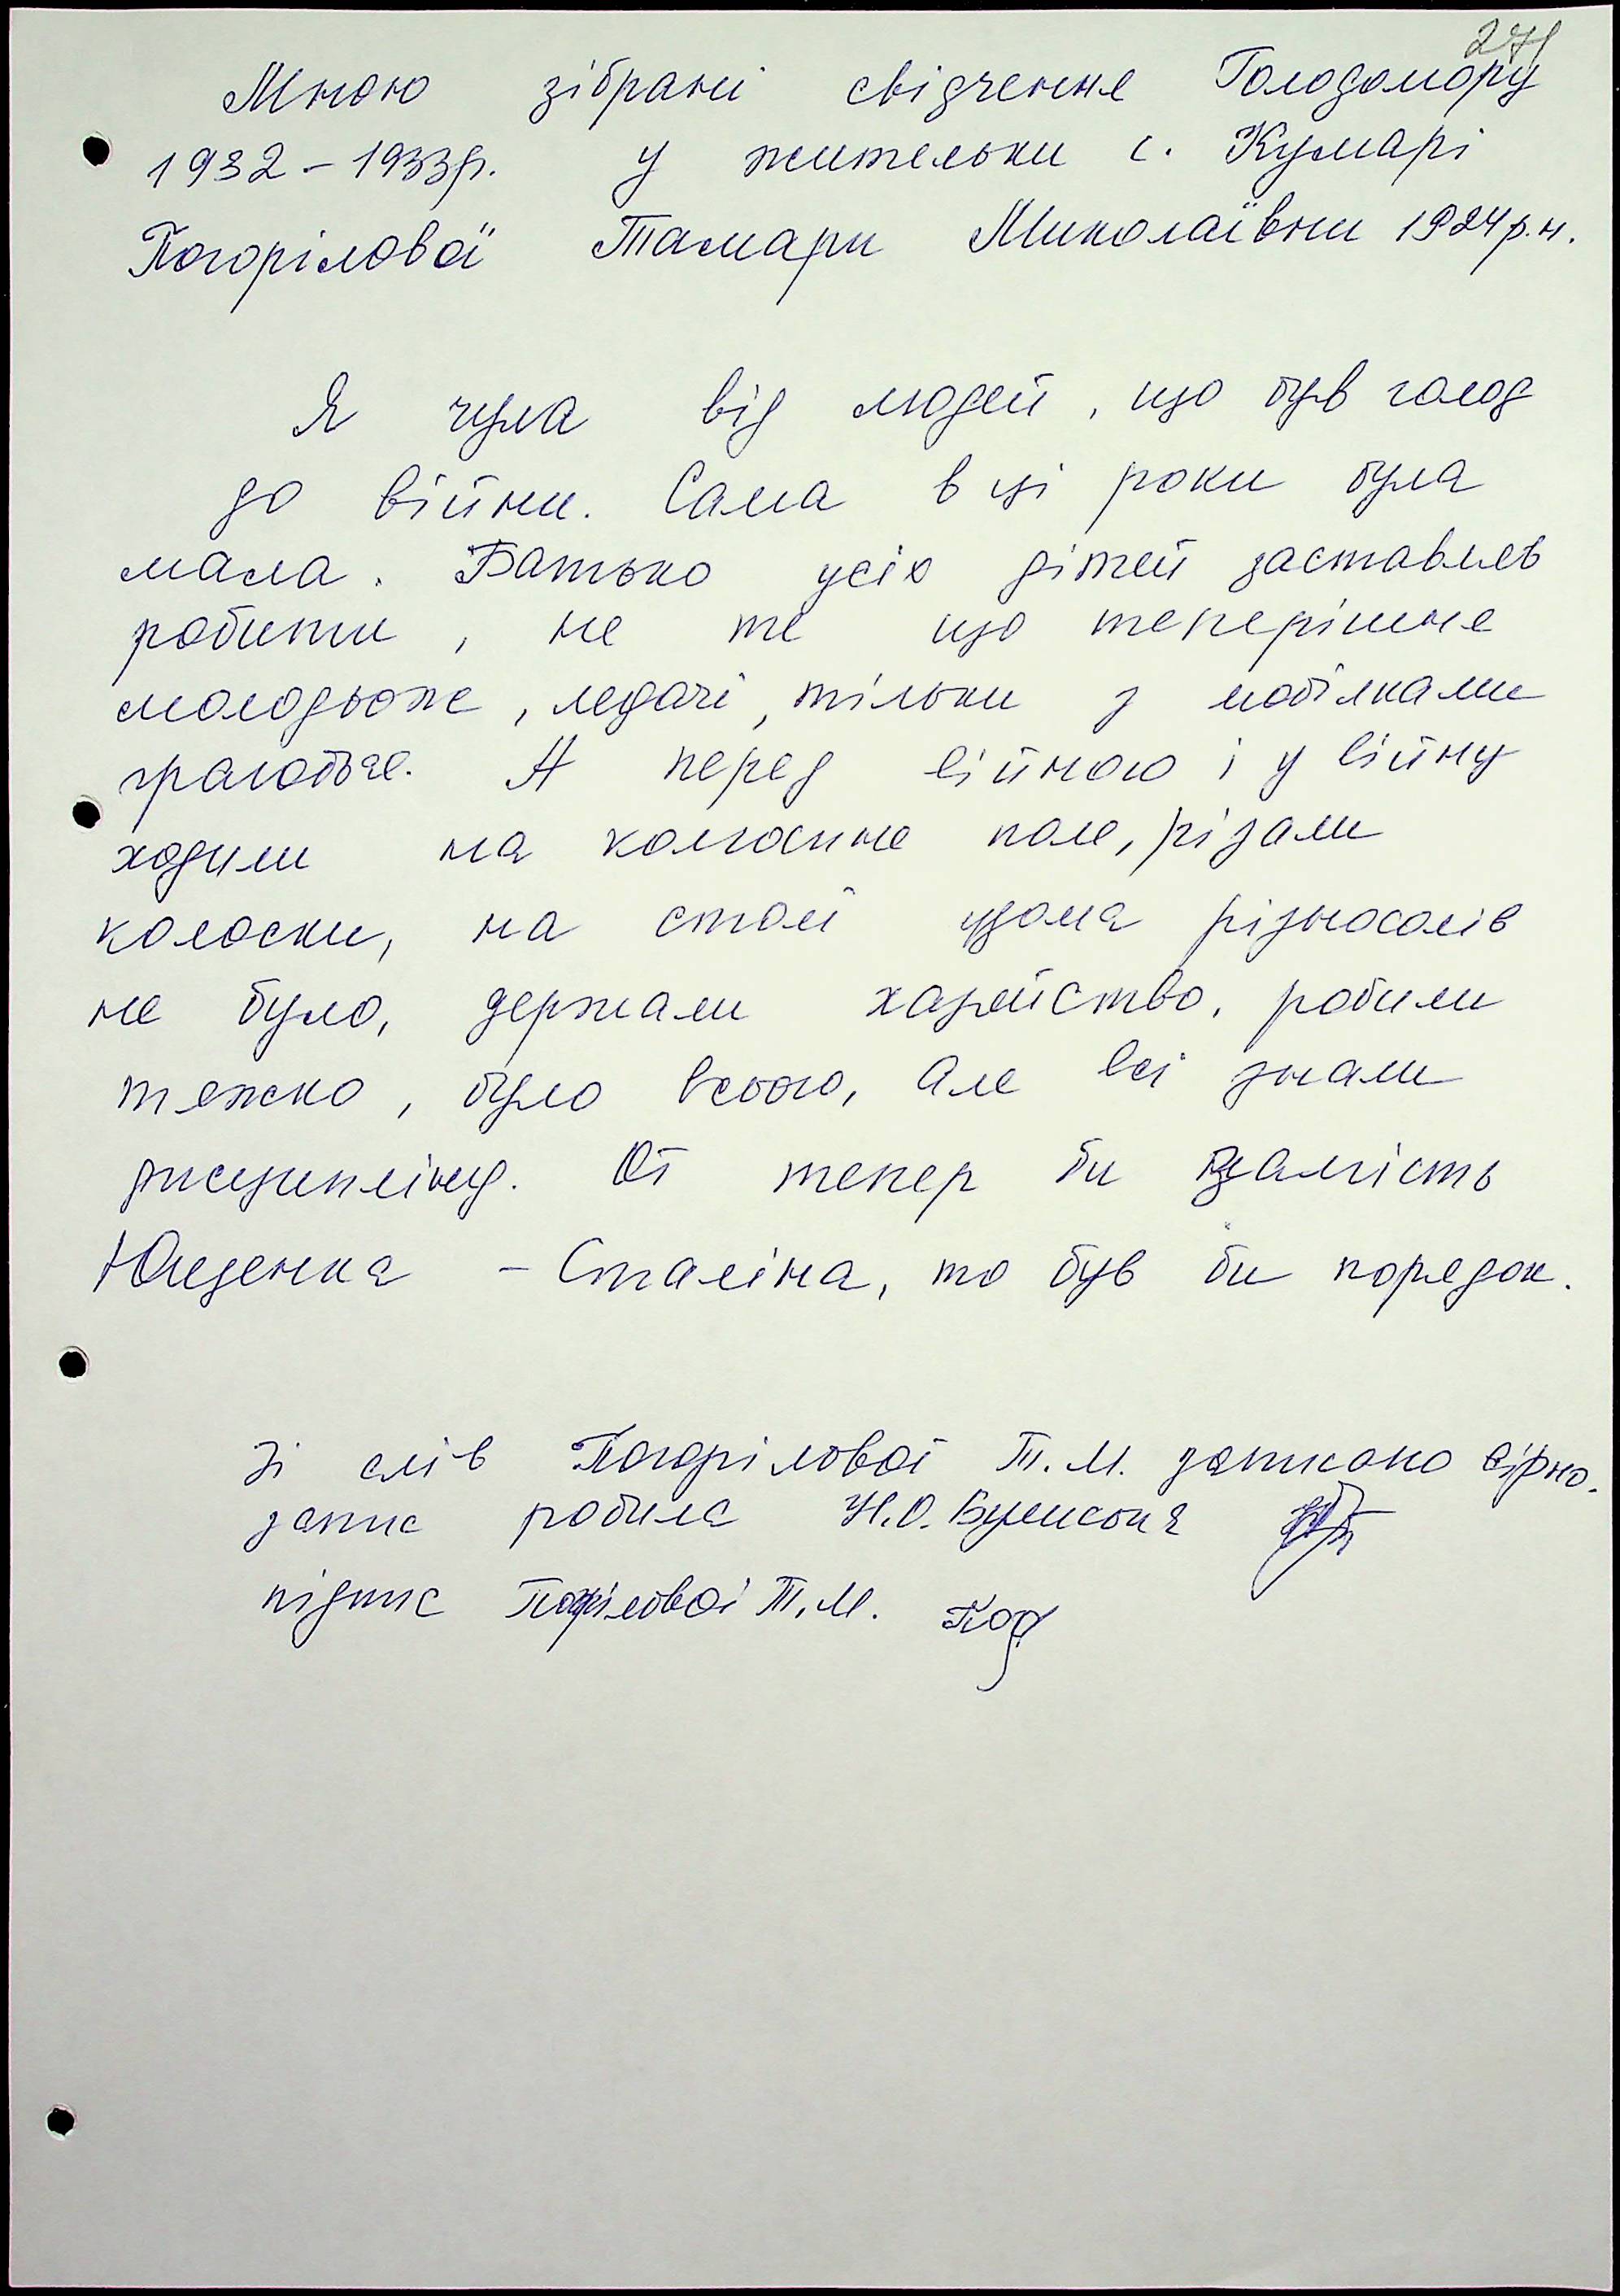 271
Мною зібрані свідчення Голодомору
1932-1933р. у жительки с. Кумарі
Погорілової Тамари Миколаївни 1924р.н.
Я чула від людей, що був голод
до війни. Сама в ці роки була
мала. Батько усіх дітей заставляв
робити, не те що теперішня
молодьож, ледачі, тільки з мобілками
граються. А перед війною і у війну
ходили на колгоспне поле, різали
колоски, на столі удома різносолів
не було, держали хазяйство, робили
тяжко, було всього, але всі знали
дисципліну. От тепер би замість
Ющенка - Сталіна, то був би порядок.
Зі слів Погорілової Т.М. записано вірно.
запис робила Н.О.
підпис Погорілової Т.М. Пог